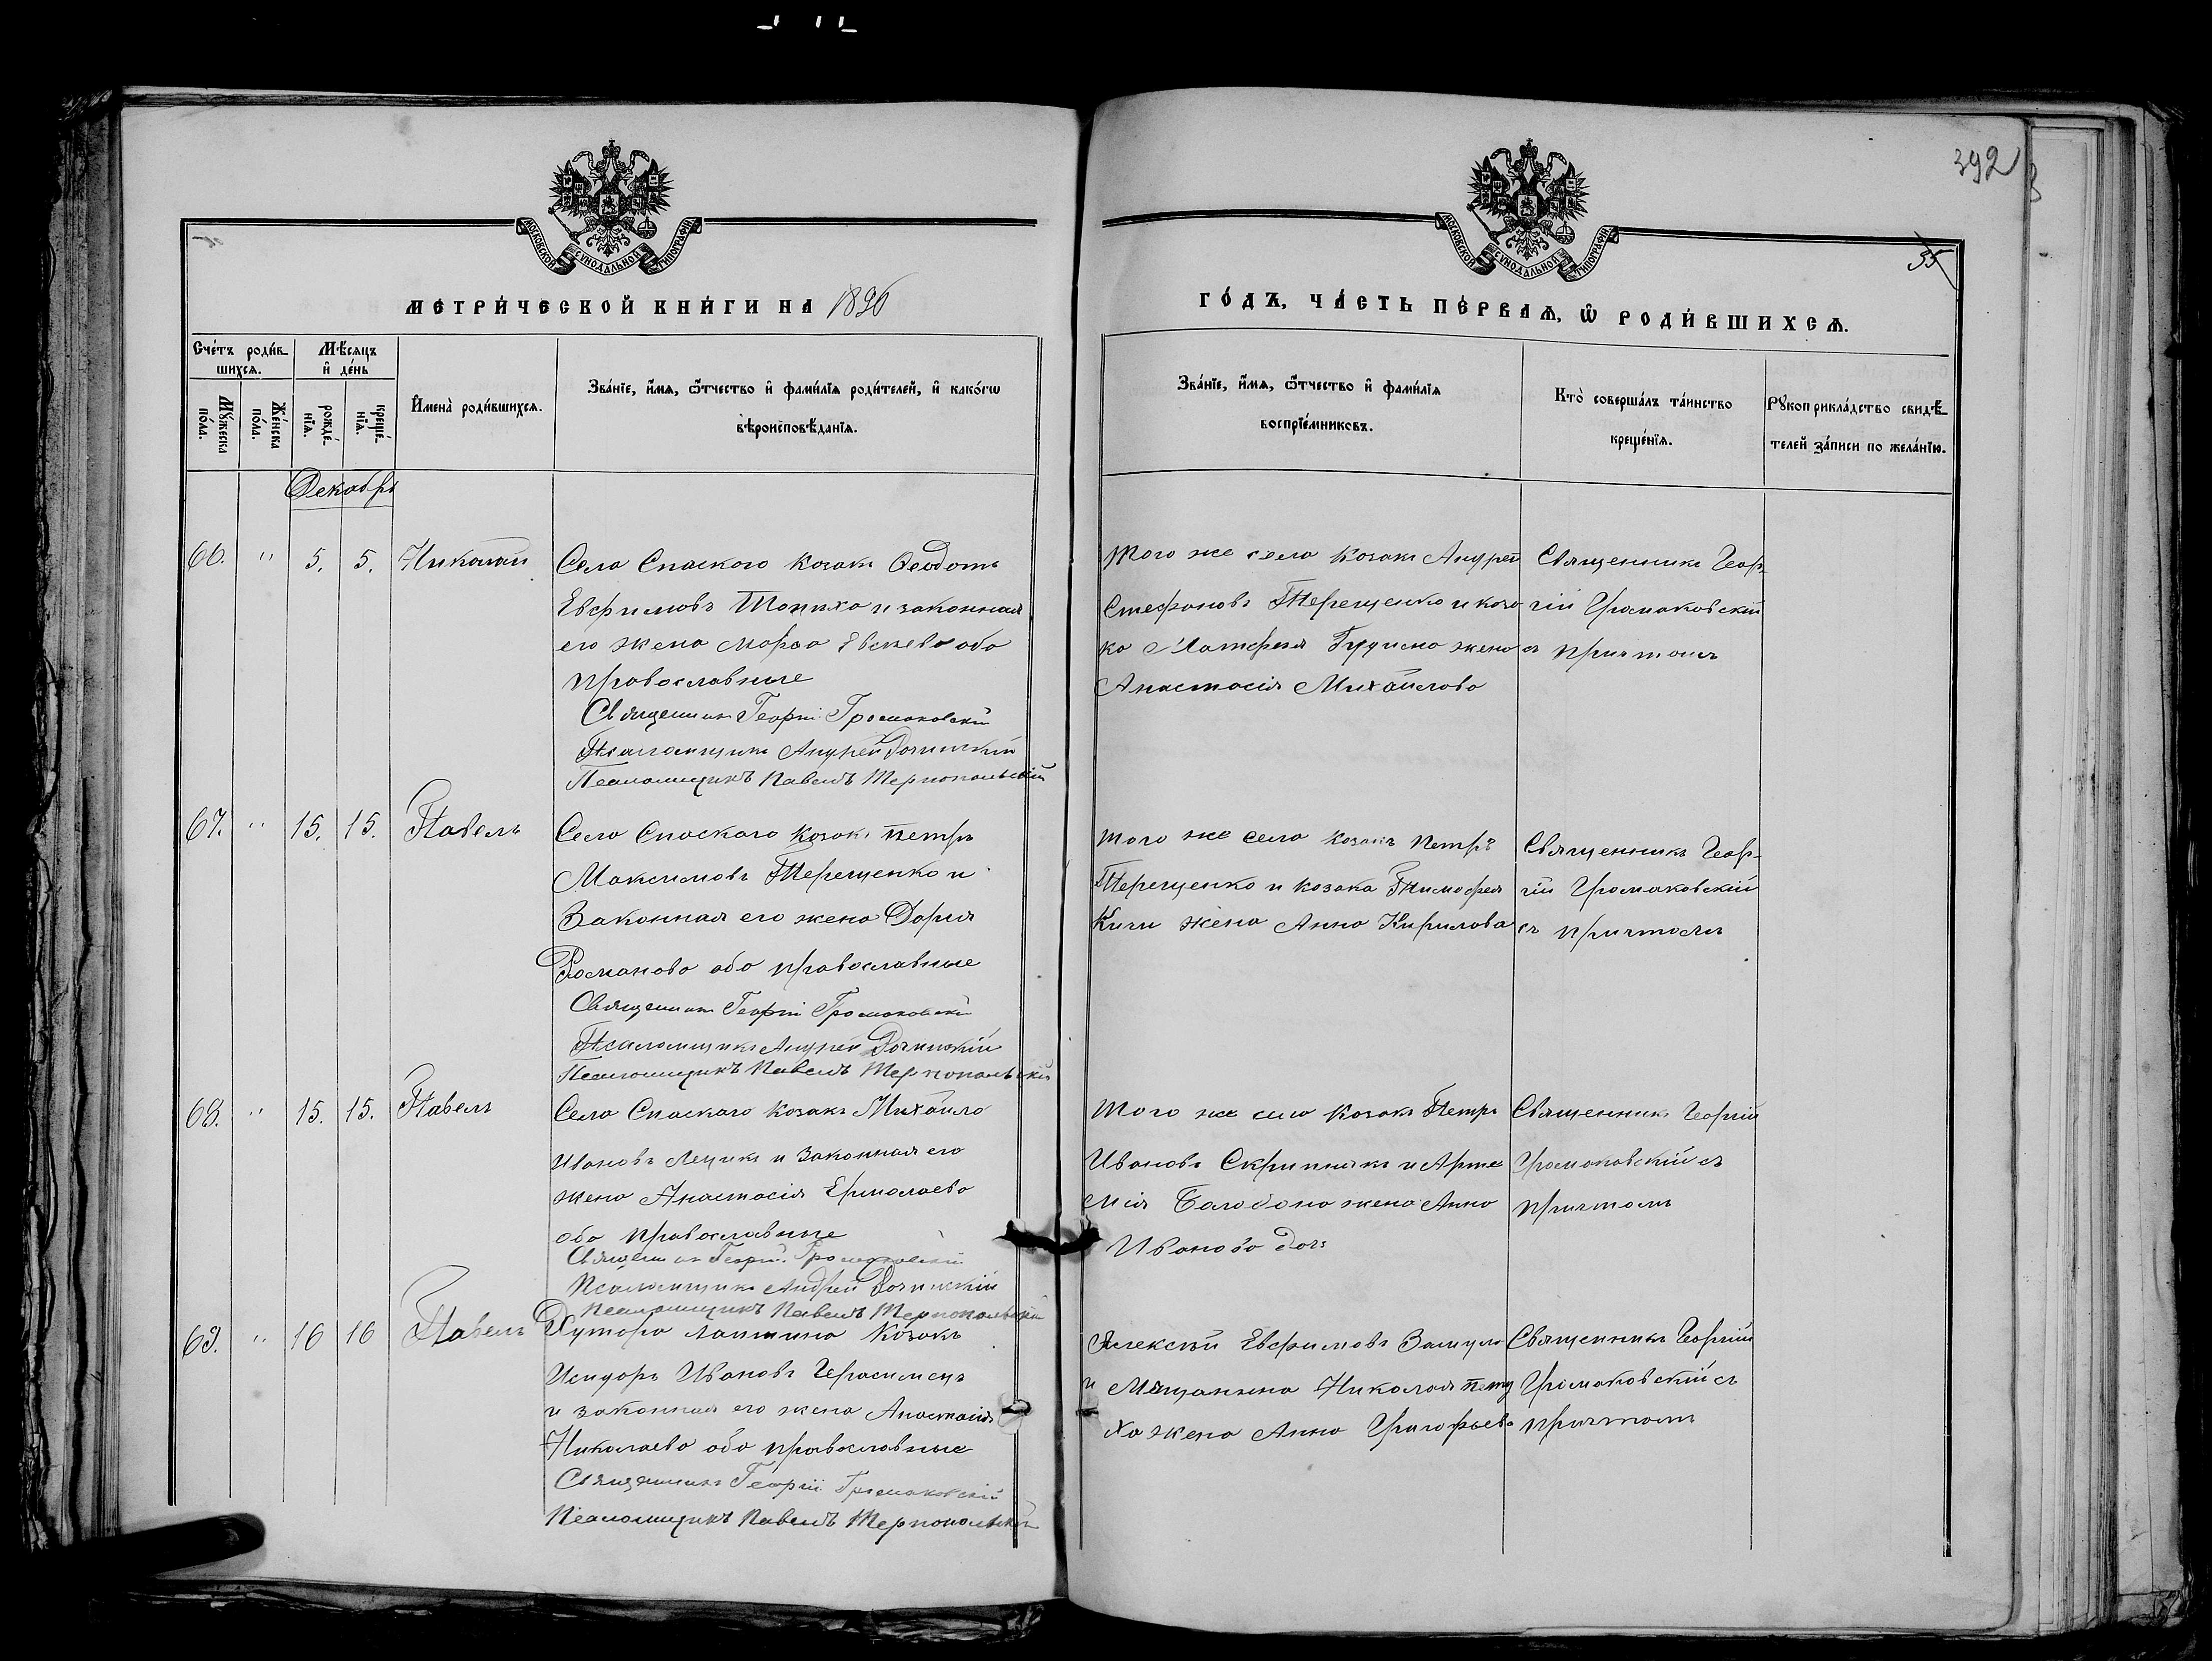 392
35
МОСКОВСКОЙ СУНОДАЛЬНОЙ ТИПОГРАФІИ
МОСКОВСКОЙ СУНОДАЛЬНОЙ ТИПОГРАФІИ
МЕТРИ́ЧЕСКОЙ КНИ́ГИ НА 1896
ГО́ДЪ, ЧА́СТЬ ПЕ́РВАѦ, Ѡ҆ РОДИ́ВШИХСѦ.
Сче́тъ роди́в-
шихсѧ.
Мѣ́сѧцъ
и҆ де́нь
Мꙋ́жеска
по́ла.
Же́нска
по́ла.
рожде́-
нїѧ.
креще́-
нїѧ.
И҆мена̀ роди́вшихсѧ.
Зва́нїе, и҆́мѧ, ѻ҆́тчество и҆ фами́лїѧ роди́телей, и҆ како́гѡ
вѣроисповѣ́данїѧ.
Зва́нїе, и҆́мѧ, ѻ҆́тчество и҆ фами́лїѧ
воспрїе́мниковъ.
Кто̀ соверша́лъ та́инство
креще́нїѧ.
Рꙋкоприкла́дство свидѣ́-
телей за́писи по жела́нїю.
Декабрь
66. " 5. 5. Николай
Села Спаского козакъ Ѳеодотъ
Евфимовъ и законная
его жена Марфа обо
православные
Священникъ Георгій Громаковскій
Псаломщикъ Андрей
Псаломщикъ Павелъ Тернопольскій
того же села козакъ Андрей
Стефановъ Терещенко и коза
ка жена
Анастасія Михайлова
Священникъ Геор-
гій Громаковскій
съ причтомъ
67. " 15. 15. Павелъ
Села Спаскаго козакъ Петръ
Максимовъ Терещенко и
Законная его жена Дарія
Романова обо православные
Священникъ Георгій Громаковскій
Псаломщикъ Андрей
Псаломщикъ Павелъ Тернопольскій
того же села козакъ Петръ
Терещенко и козака Тимофея
жена Анна Кирилова
Священникъ Геор-
гій Громаковскій
съ причтомъ
68. " 15. 15. Павелъ
Села Спаскаго козакъ Михаилъ
Ивановъ и Законная его
жена Анастасія Ермолаева
обо православные
Священникъ Георгій Громаковскій
Псаломщикъ Андрей
Псаломщикъ Павелъ Тернопольскій
Того же села козакъ Петръ
Ивановъ и Арте
мія жена Анна
Иванова
Священникъ Георгій
Громаковскій съ
причтомъ
69. " 16 16 Павелъ
Хутора козакъ
Исидоръ Ивановъ Герасимецъ
и законная его жена Анастасія
Николаева обо православные
Священникъ Георгій Громаковскій
Псаломщикъ Павелъ Тернопольскій
Алексѣй Евфимовъ
и Мѣщанина Николая Пету
ха жена Анна Григорьева
Священникъ Георгій
Громаковскій съ
причтомъ